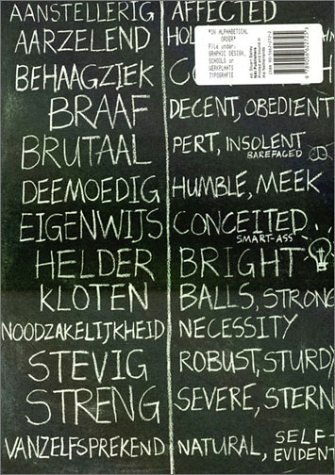 AANSTELLERIG AFFECTED
AARZELEND HO
BEHAAGZIEK
BRAAF DECENT, OBEDIENT
BRUTAAL PERT, INSOLENT
BAREFACED
DEEMOEDIG HUMBLE, MEEK
EIGENWIJS CONCEITED
SMART-ASS
HELDER BRIGHT
KLOTEN BALLS, STRONG
NOODZAKELIJKHEID NECESSITY
STEVIG ROBUST, STURD
STRENG SEVERE, STERN
VANZELFSPREKEND NATURAL, SELF-
EVIDENT
"IN ALPHABETICAL
ORDER"
File under:
GRAPHIC DESIGN,
SCHOOLS or
WERKPLAATS
TYPOGRAFIE